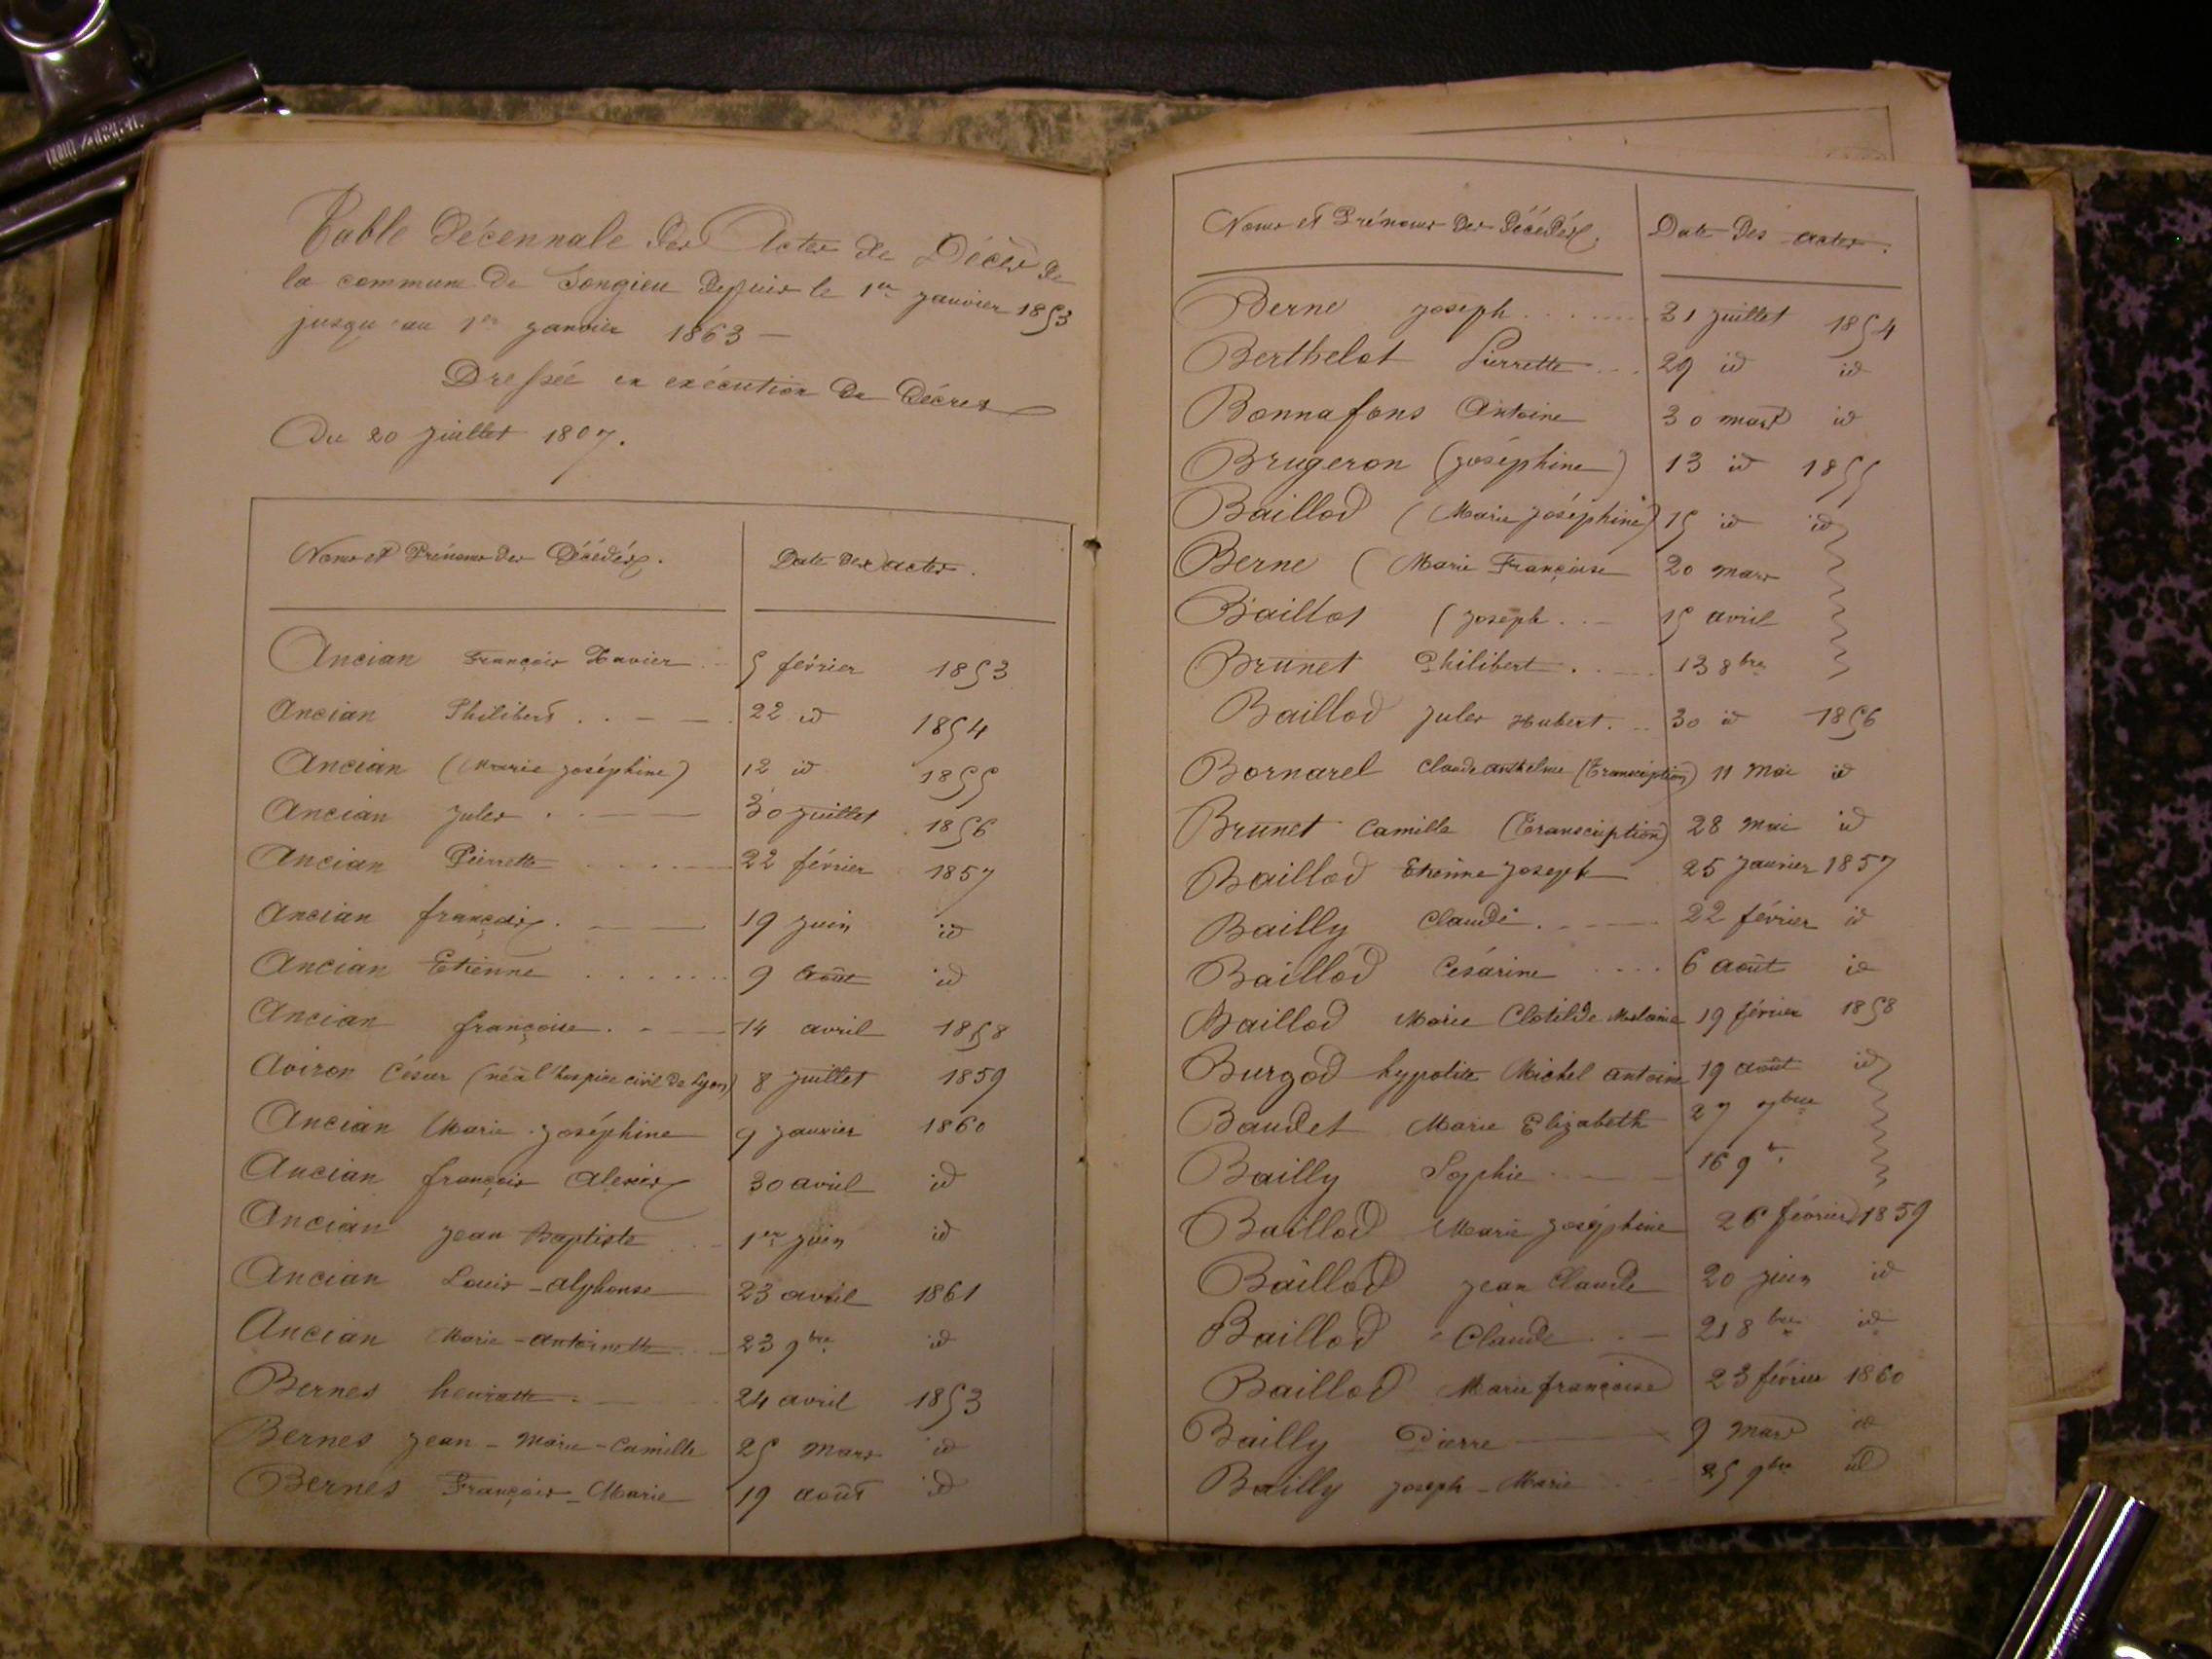 Table Décennale des Actes de Décès de
la commune de Songieu Depuis le 1er janvier 1853
jusqu'au 1er janvier 1863 —
Dressée en exécution du Décret
Du 20 juillet 1807.
Noms et Prénoms des Décédés. Date des actes.
Ancian François Xavier 5 février 1853
Ancian Philibert 22 id 1854
Ancian (Marie joséphine) 12 id 1855
Ancian jules 30 juillet 1856
Ancian Pierrette 22 février 1857
Ancian françois 19 juin id
Ancian Etienne 9 août id
Ancian françoise 14 avril 1858
Aviron César (né à l'hospice civil de Lyon) 8 juillet 1859
Ancian Marie joséphine 9 janvier 1860
Ancian françois alexis 30 avril id
Ancian jean Baptiste 1er juin id
Ancian Louis-alphonse 23 avril 1861
Ancian Marie-antoinette 23 9bre id
Bernes henriette 24 avril 1853
Bernes jean-Marie-Camille 25 mars id
Bernes François-Marie 19 août id
Noms et Prénoms des Décédés. Date Des actes.
Berne joseph 21 juillet 1854
Berthelot Pierrette 29 id id
Bonnafons Antoine 30 mars id
Brugeron (joséphine) 13 id 1855
Baillod (Marie joséphine) 15 id id
Berne (Marie Françoise 20 mars
Baillot (joseph 15 avril
Brunet Philibert 13 8bre
Baillod jules Hubert 30 id 1856
Bornarel Claude anthelme (Transcription) 11 mai id
Brunet Camille (Transcription) 28 mai id
Baillod Etienne joseph 25 janvier 1857
Bailly Claude 22 février id
Baillod Césarine 6 août id
Baillod Marie Clotilde Melanie 19 février 1858
Burgod hypolite Michel antoine 19 août id
Baudet Marie Elizabeth 27 7bre
Bailly Sophie 16 9e
Baillod Marie joséphine 26 février 1859
Baillod jean Claude 20 juin id
Baillod Claude 21 8bre id
Baillod Marie françoise 23 février 1860
Bailly Pierre 9 mars id
Bailly joseph-Marie 25 9bre id